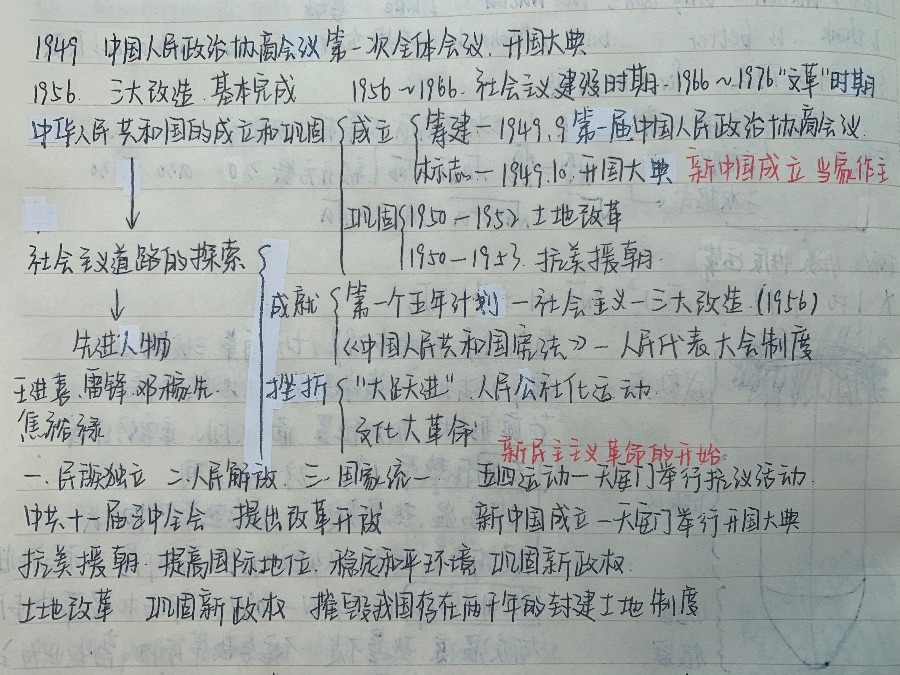 1949 中国人民政治协商会议第一次全体会议.开国大典
1956. 三大改造.基本完成 1956~1966.社会主义建设时期.1966~1976"文革"时期
中华人民共和国的成立和巩固 成立 筹建—1949.9第一届中国人民政治协商会议.
标志—1949.10.开国大典 新中国成立 当家作主
巩固 1950—1952 土地改革
1950—1953.抗美援朝.
社会主义道路的探索
成就 第一个五年计划—社会主义—三大改造.(1956)
《中国人民共和国宪法》—人民代表大会制度
先进人物
王进喜.雷锋.邓稼先. 挫折 "大跃进".人民公社化运动
焦裕禄 文化大革命
新民主主义革命的开始.
一.民族独立 二.人民解放 三.国家统一 五四运动—天安门举行抗议活动.
中共十一届三中全会 提出改革开放 新中国成立—天安门举行开国大典
抗美援朝.提高国际地位.稳定和平环境 巩固新政权.
土地改革 巩固新政权 摧毁我国存在两千年的封建土地制度